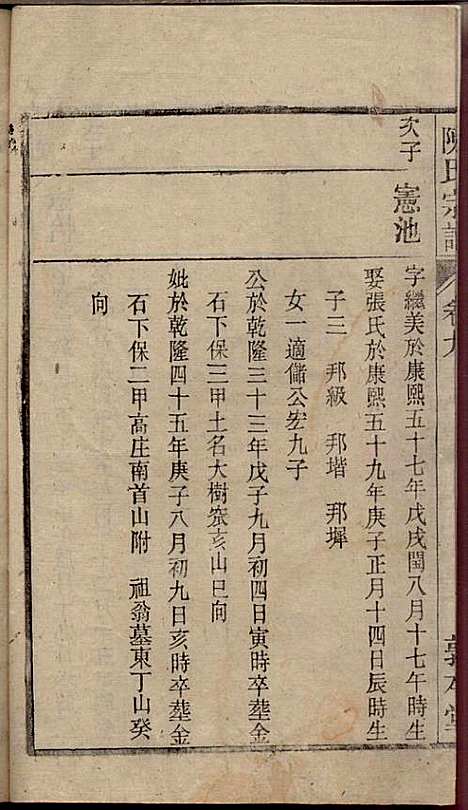 陳氏宗譜
卷九
敦本堂
次子
憲池
字繼美於康熙五十七年戊戌閏八月十七午時生
娶張氏於康熙五十九年庚子正月十四日辰時生
子三 邦級 邦堦 邦墀
女一適儲公宏九子
公於乾隆三十三年戊子九月初四日寅時卒塟金
石下保三甲土名大樹窊亥山巳向
妣於乾隆四十五年庚子八月初九日亥時卒塟金
石下保二甲高庄南首山附 祖翁墓東丁山癸
向